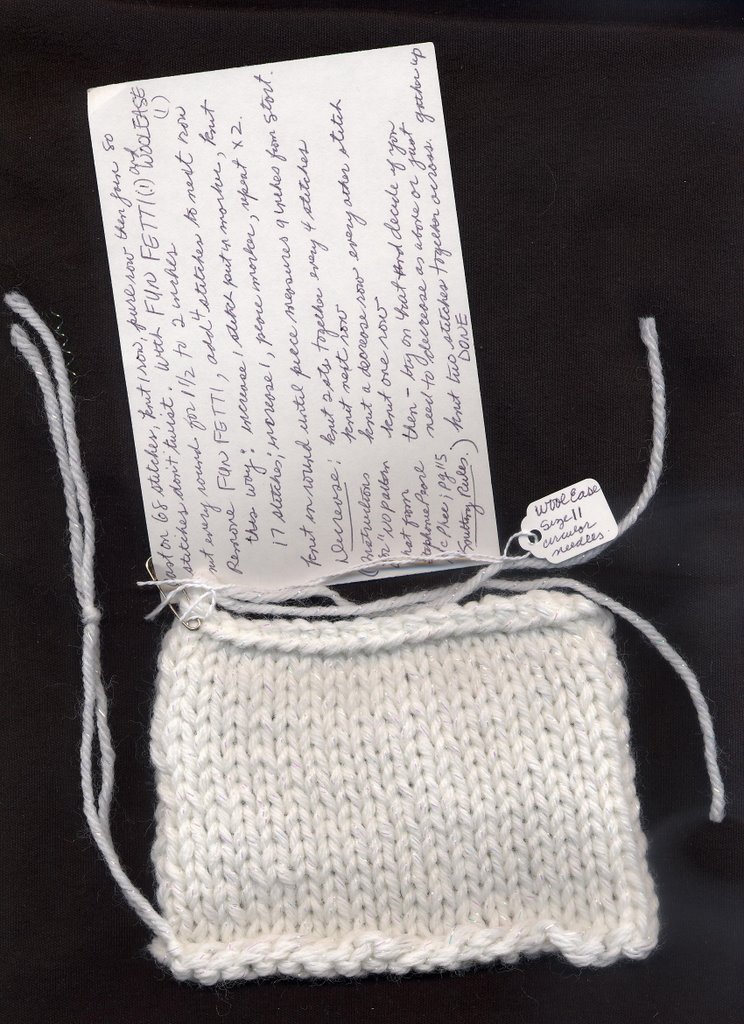 ast on 68 stitches, knit 1 row, purl 1 row then join so
stitches don't twist. With FUN FETTI (1) and WOOLEASE (1)
nit every round for 1 1/2 to 2 inches
Remove FUN FETTI, add 4 stitches to next row
this way: increase 1 stitch put in marker, knit
17 stitches, increase 1, place marker, repeat x 2.
Knit in round until piece measures 9 inches from start.
Decrease: knit 2 sts together every 4 stitches
knit next row
knit a decrease row every other stitch
knit one row
then - try on hat and decide if you
need to decrease as above or just gather up
knit two stitches together across.
DONE
(instructions
in '20 pattern
hat from
Stephanie Pearl
McPhee; pg 115
Knitting Rules.)
WoolEase
Size 11
circular
needles